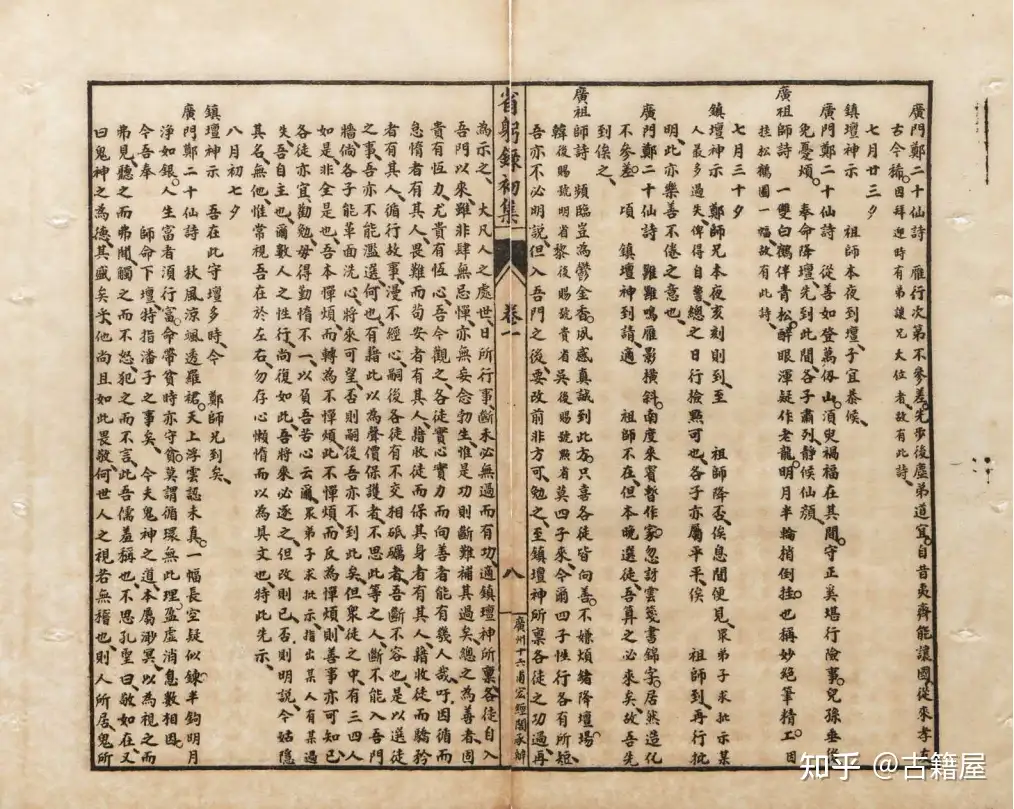 廣門鄭二十仙詩　雁行次第不參差。先步後塵弟道宜。自昔夷齊能讓國、從來孝友
古今稱。因拜迎時有弟讓兄大位者故有此詩、
七月廿三夕
鎮壇神示　祖師本夜到壇、子宜恭候、
廣門鄭二十仙詩　從善如登萬仞山。須臾禍福在其間。守正奚堪行險事。兒孫垂從
免憂煩。　奉命降壇、先到此間、各子肅列、靜候仙顏、
廣祖師詩　一雙白鶴伴青松。醉眼渾疑作老龍。明月半輪梢倒挂。也稱妙絕筆精工。因
挂松鶴圖一幅故有此詩、
七月三十夕
鎮壇神示　鄭師兄本夜亥刻則到、至　祖師降否、俟息間便見、眾弟子求批示某
人最多過失、俾得自警、總之日行撿點可也、各子亦屬平平、俟　祖師到、再行批
明、此亦樂善不倦之意也、
廣門鄭二十仙詩　雝雝鳴雁影橫斜。南度來賓暫作家。忽訪雲箋書錦字。居然造化
不參差。　頃　鎮壇神到請、適　祖師不在、但本晚選徒、吾算之必來矣、故吾先
到俟之、
廣祖師詩　頻臨豈為鬱金香。夙感真誠到此方。只喜各徒皆向善。不嫌煩緒降壇場。
韓後賜號明省黎後賜號貴省吳後賜號點省莫四子來、今爾四子性行各有所短、
吾亦不必明說、但入吾門之後、要改前非方可、勉之、至鎮壇神所稟各徒之功過、再
省躬錄初集
卷一
八
廣州十六甫宏經閣承辦
為示之、　大凡人之處世、日所行事、斷未必無過而有功、適鎮壇神所稟、各徒自入
吾門以來、雖非肆無忌憚、亦無妄念勃生、惟是功則斷難補其過矣、總之為善者、固
貴有恆力、尤貴有恆心、吾今觀之、各徒實心實力而向善者能有幾人哉、吁、因循而
怠惰者有其人、畏難而苟安者有其人、藉收徒而保其身者有其人、藉收徒而驕矜
者有其人、循行故事、漫不經心、嗣後各徒有不交相砥礪者、吾斷不容也、是以選徒
之事、吾亦不能濫選、何也、有藉此以為聲價保護者、不思此等之人、斷不能入吾門
牆、倘各子能革面洗心、將來可望、否則嗣後吾亦不到此矣、但眾徒之中、有三四人
如是、非全是也、吾本憚煩、而轉為不憚煩、此不憚煩、而反為憚煩、則善事亦可知已、
各徒亦宜勸勉、毋得勤惰不一、以負吾苦心云爾、眾弟子求批示指出某人有某過
失、吾自主也、爾數人之性行、尚復如此、吾將來必逐之、但改則已、否則明說、今姑隱
其名、無他、惟常視吾在於左右、勿存心懶惰而以為具文也、特此先示、
八月初七夕
鎮壇神示　吾在此守壇多時、今　鄭師兄到矣、
廣門鄭二十仙詩　秋風涼颯透羅裙。天上浮雲認未真。一幅長空疑似鍊。半鉤明月
淨如銀。人生富者須行富。命帶貧時亦守貧。莫謂循環無此理。盈虛消息數相因。
今吾奉　師命下壇、特指潘子之事矣、　今夫鬼神之道、本屬渺冥、以為視之而
弗見、聽之而弗聞、觸之而不怒、犯之而不言、此吾儒羞稱也、不思孔聖曰敬如在、又
曰鬼神之為德、其盛矣乎、他尚且如此畏敬、何世人之視若無稽也、則人所居、鬼所
知乎 @古籍屋